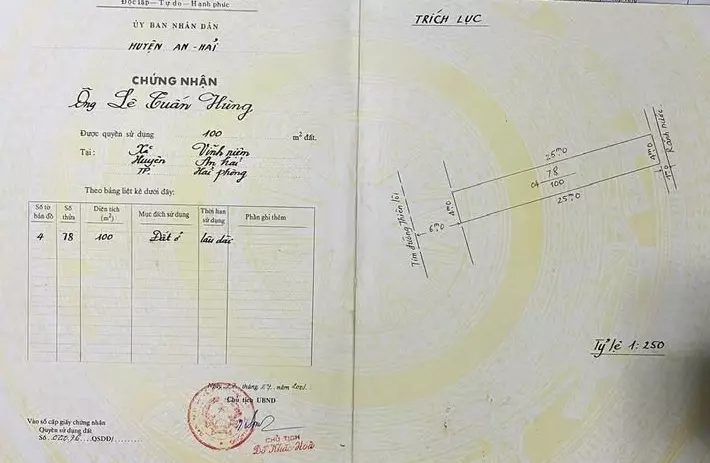 Độc lập - Tự do - Hạnh phúc
ỦY BAN NHÂN DÂN
HUYỆN AN-HẢI
CHỨNG NHẬN
Ông Lê Tuấn Hùng
Được quyền sử dụng 100 m² đất.
Tại: Xã Vĩnh niệm
Huyện An hải
TP. Hải phòng
Theo bảng liệt kê dưới đây:
Số tờ bản đồ Số thửa Diện tích (m²) Mục đích sử dụng Thời hạn sử dụng Phần ghi thêm
4 78 100 Đất ở lâu dài
Ngày 27 tháng năm 2001
Chủ tịch UBND
CHỦ TỊCH
Đỗ Khắc Hoà
Vào sổ cấp giấy chứng nhận
Quyền sử dụng đất
Số QSDĐ/
TRÍCH LỤC
Tim đường Thiên Lôi
6m0
4m0
25m0
04 78
100
25m0
4m0
1m0
Rãnh nước
Tỷ lệ 1:250